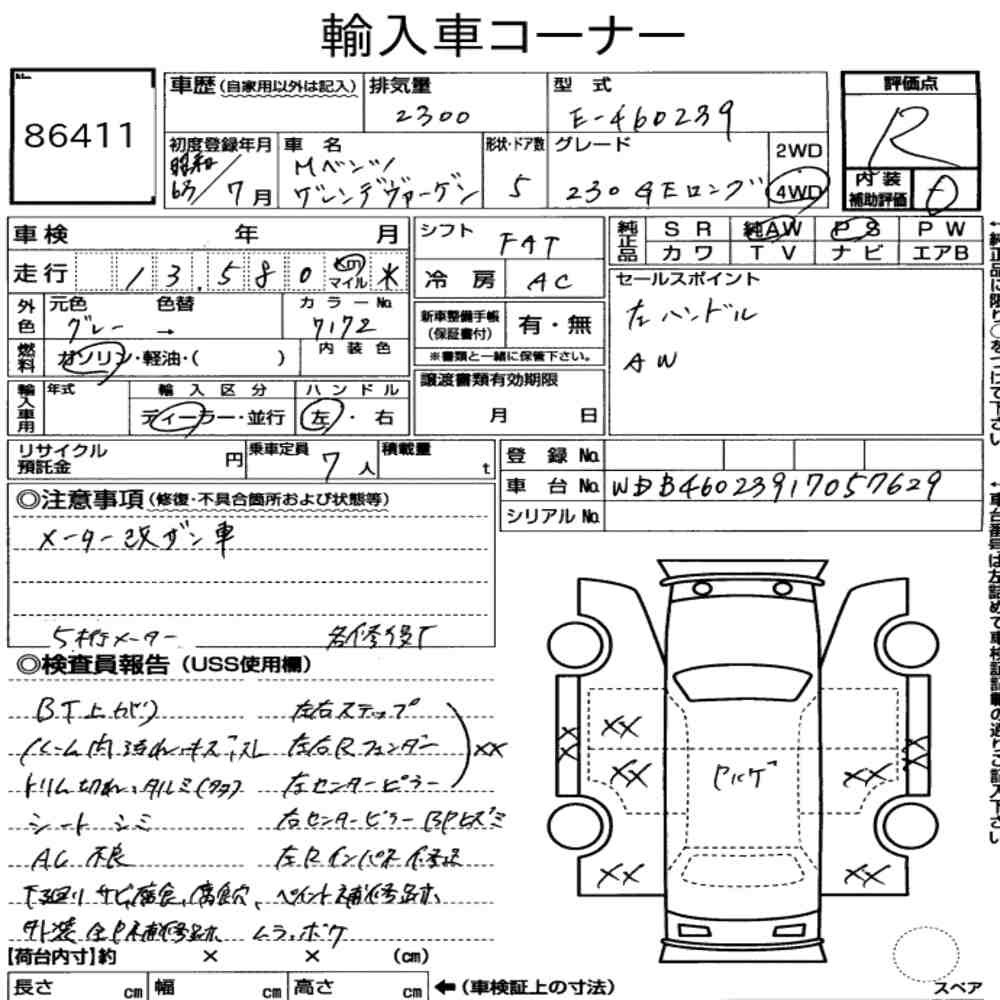 輸入車コーナー
86411
車歴 (自家用以外は記入)
排気量
2300
型 式
E-460239
評価点
R
初度登録年月
昭和
63/7月
車 名
Mベンツ
ゲレンデヴァーゲン
形状・ドア数
5
グレード
230GEロング
2WD
4WD
内 装
補助評価
車検 年 月
走行 13,580
マイル
外色
元色 色替
グレー →
カラーNo.
7172
燃料
ガソリン・軽油・( )
内装色
輸入車用
年式
輸入区分
ディーラー・並行
ハンドル
左・右
シフト
FAT
冷 房
AC
新車整備手帳
(保証書付)
有・無
※書類と一緒に保管下さい。
譲渡書類有効期限
月 日
純正品
SR 純AW PS PW
カワ TV ナビ エアB
セールスポイント
左ハンドル
AW
リサイクル
預託金 円
乗車定員
7人
積載量
t
登 録 No.
車 台 No. WDB46023917057629
シリアル No.
◎注意事項 (修復・不具合箇所および状態等)
メーター改ザン車
5桁メーター
◎検査員報告 (USS使用欄)
BT上ガリ 左右ステップ
左右Rフェンダー XX
トリム切れ、タルミ 左センターピラー
シート シミ 右センターピラー
AC不良 左Rインパネ
下廻りサビ、腐食、腐食穴、ペイント補修跡
外装 補修跡 ムラ、ボケ
XX
XX
XX
XX
XX
【荷台内寸】約 × × (cm)
長さ cm 幅 cm 高さ cm ←(車検証上の寸法)
スペア
←純正品に限り○をつけて下さい
←車台番号は左詰めで車検証記載の通りご記入下さい